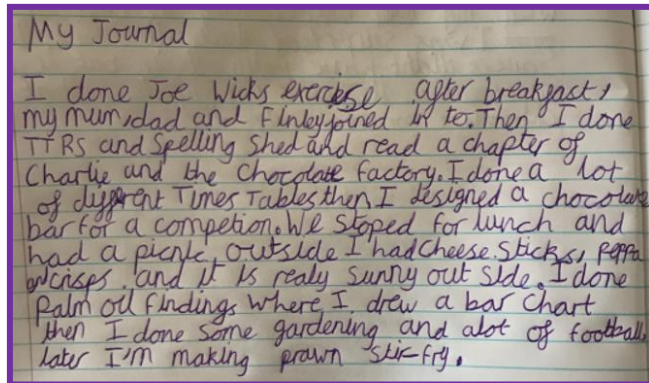 My Journal
I done Joe Wicks exercise after breakfast,
my mum, dad and Finley joined in to. Then I done
TTRS and Spelling Shed and read a chapter of
Charlie and the Chocolate factory. I done a lot
of different Times Tables then I designed a chocolate
bar for a competion. We stoped for lunch and
had a picnic, outside I had cheese. Sticks, Peppa
crisps and it is realy sunny out side. I done
Palm oil findings where I drew a bar chart
then I done some gardening and alot of football,
later I'm making prawn stir-fry.